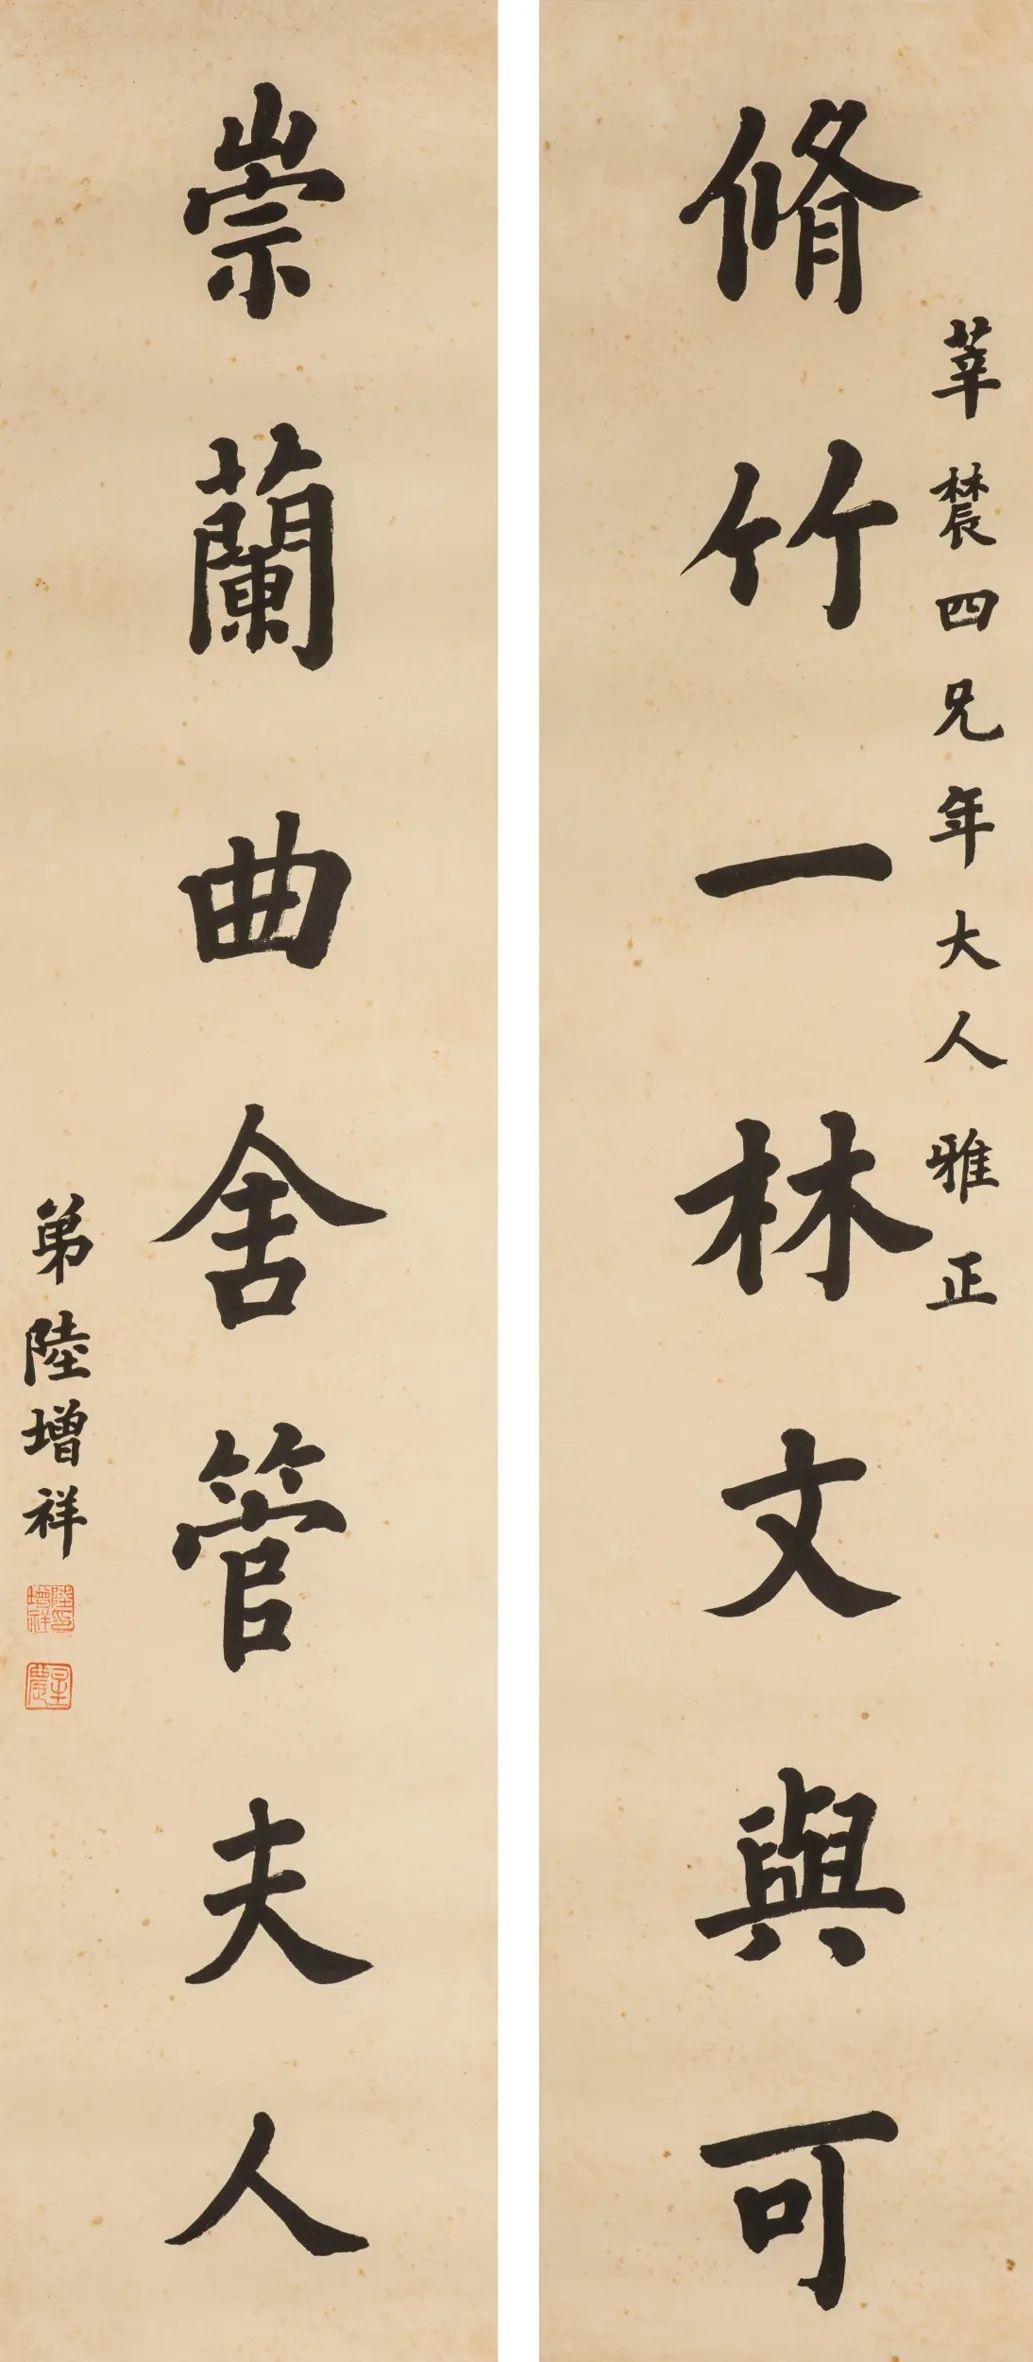 莘檂四兄年大人雅正
脩竹一林文與可
崇蘭曲舍管夫人
弟陸增祥
陸增祥印
星農